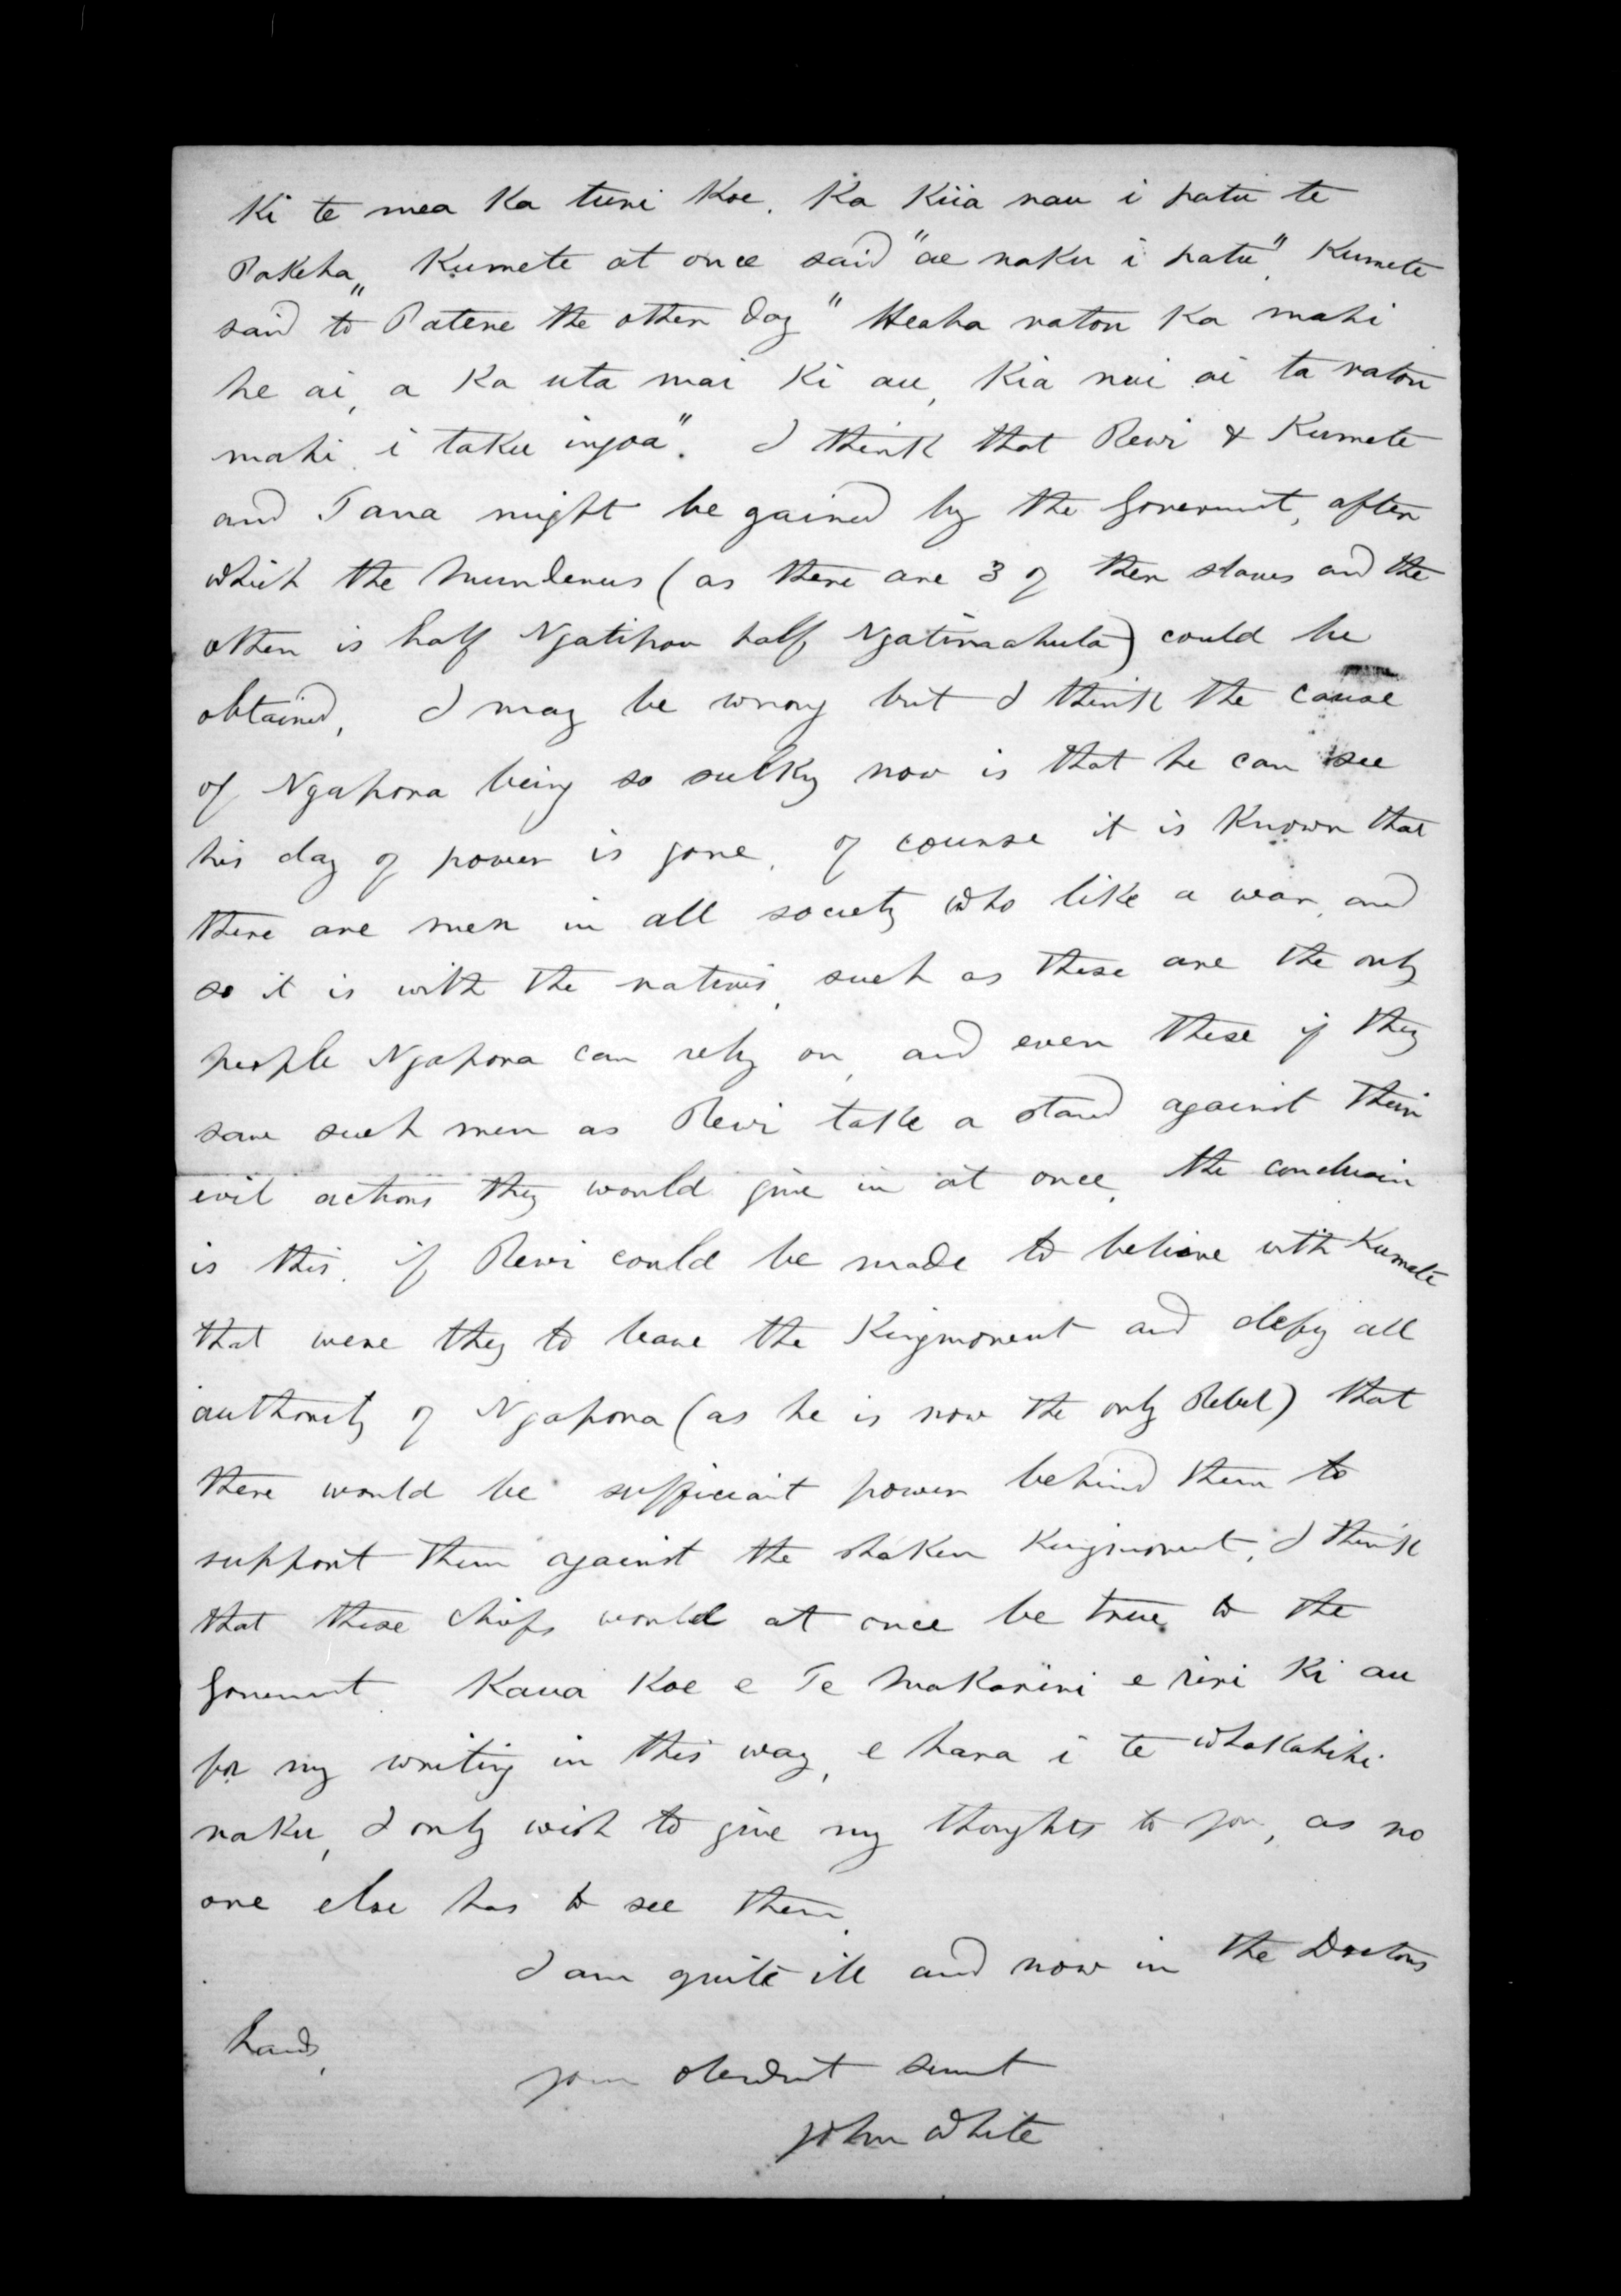 Ki te mea ka turi koe, ka kiia nau i patu te
Pakeha" Kumete at once said "ae naku i patu", Kumete
said to Patene the other day "Heaha ratou ka mahi
he ai, a ka uta mai ki au, kia nui ai ta ratou
mahi i taku ingoa". I think that Rewi & Kumete
and Tana might be gained by the Goverment, after
which the Murderers (as there are 3 of them slaves and the
other is half Ngatipou half Ngatimahuta) could be
obtained, I may be wrong but I think the cause
of Ngapora being so sulky now is that he can see
his day of power is gone, of course it is known that
there are men in all society who like a war, and
so it is with the natives, such as these are the only
people Ngapora can rely on, and even these if they
saw such men as Rewi take a stand against their
evil actions they would give in at once, the conclusion
is this, if Rewi could be made to believe with Kumete
that were they to leave the Kingmovement and defy all
authority of Ngapora (as he is now the only Rebel) that
there would be sufficiant power behind them to
support them against the shaken Kingmovement, I think
that these chiefs would at once be true to the
Goverment Kaua koe e Te Makarini e riri ki au
for my writing in this way, e hara i te whakahihi
naku, I only wish to give my thoughts to you, as no
one else has to see them,
I am quite ill and now in the Doctors
hands,
your obedient servant
John White